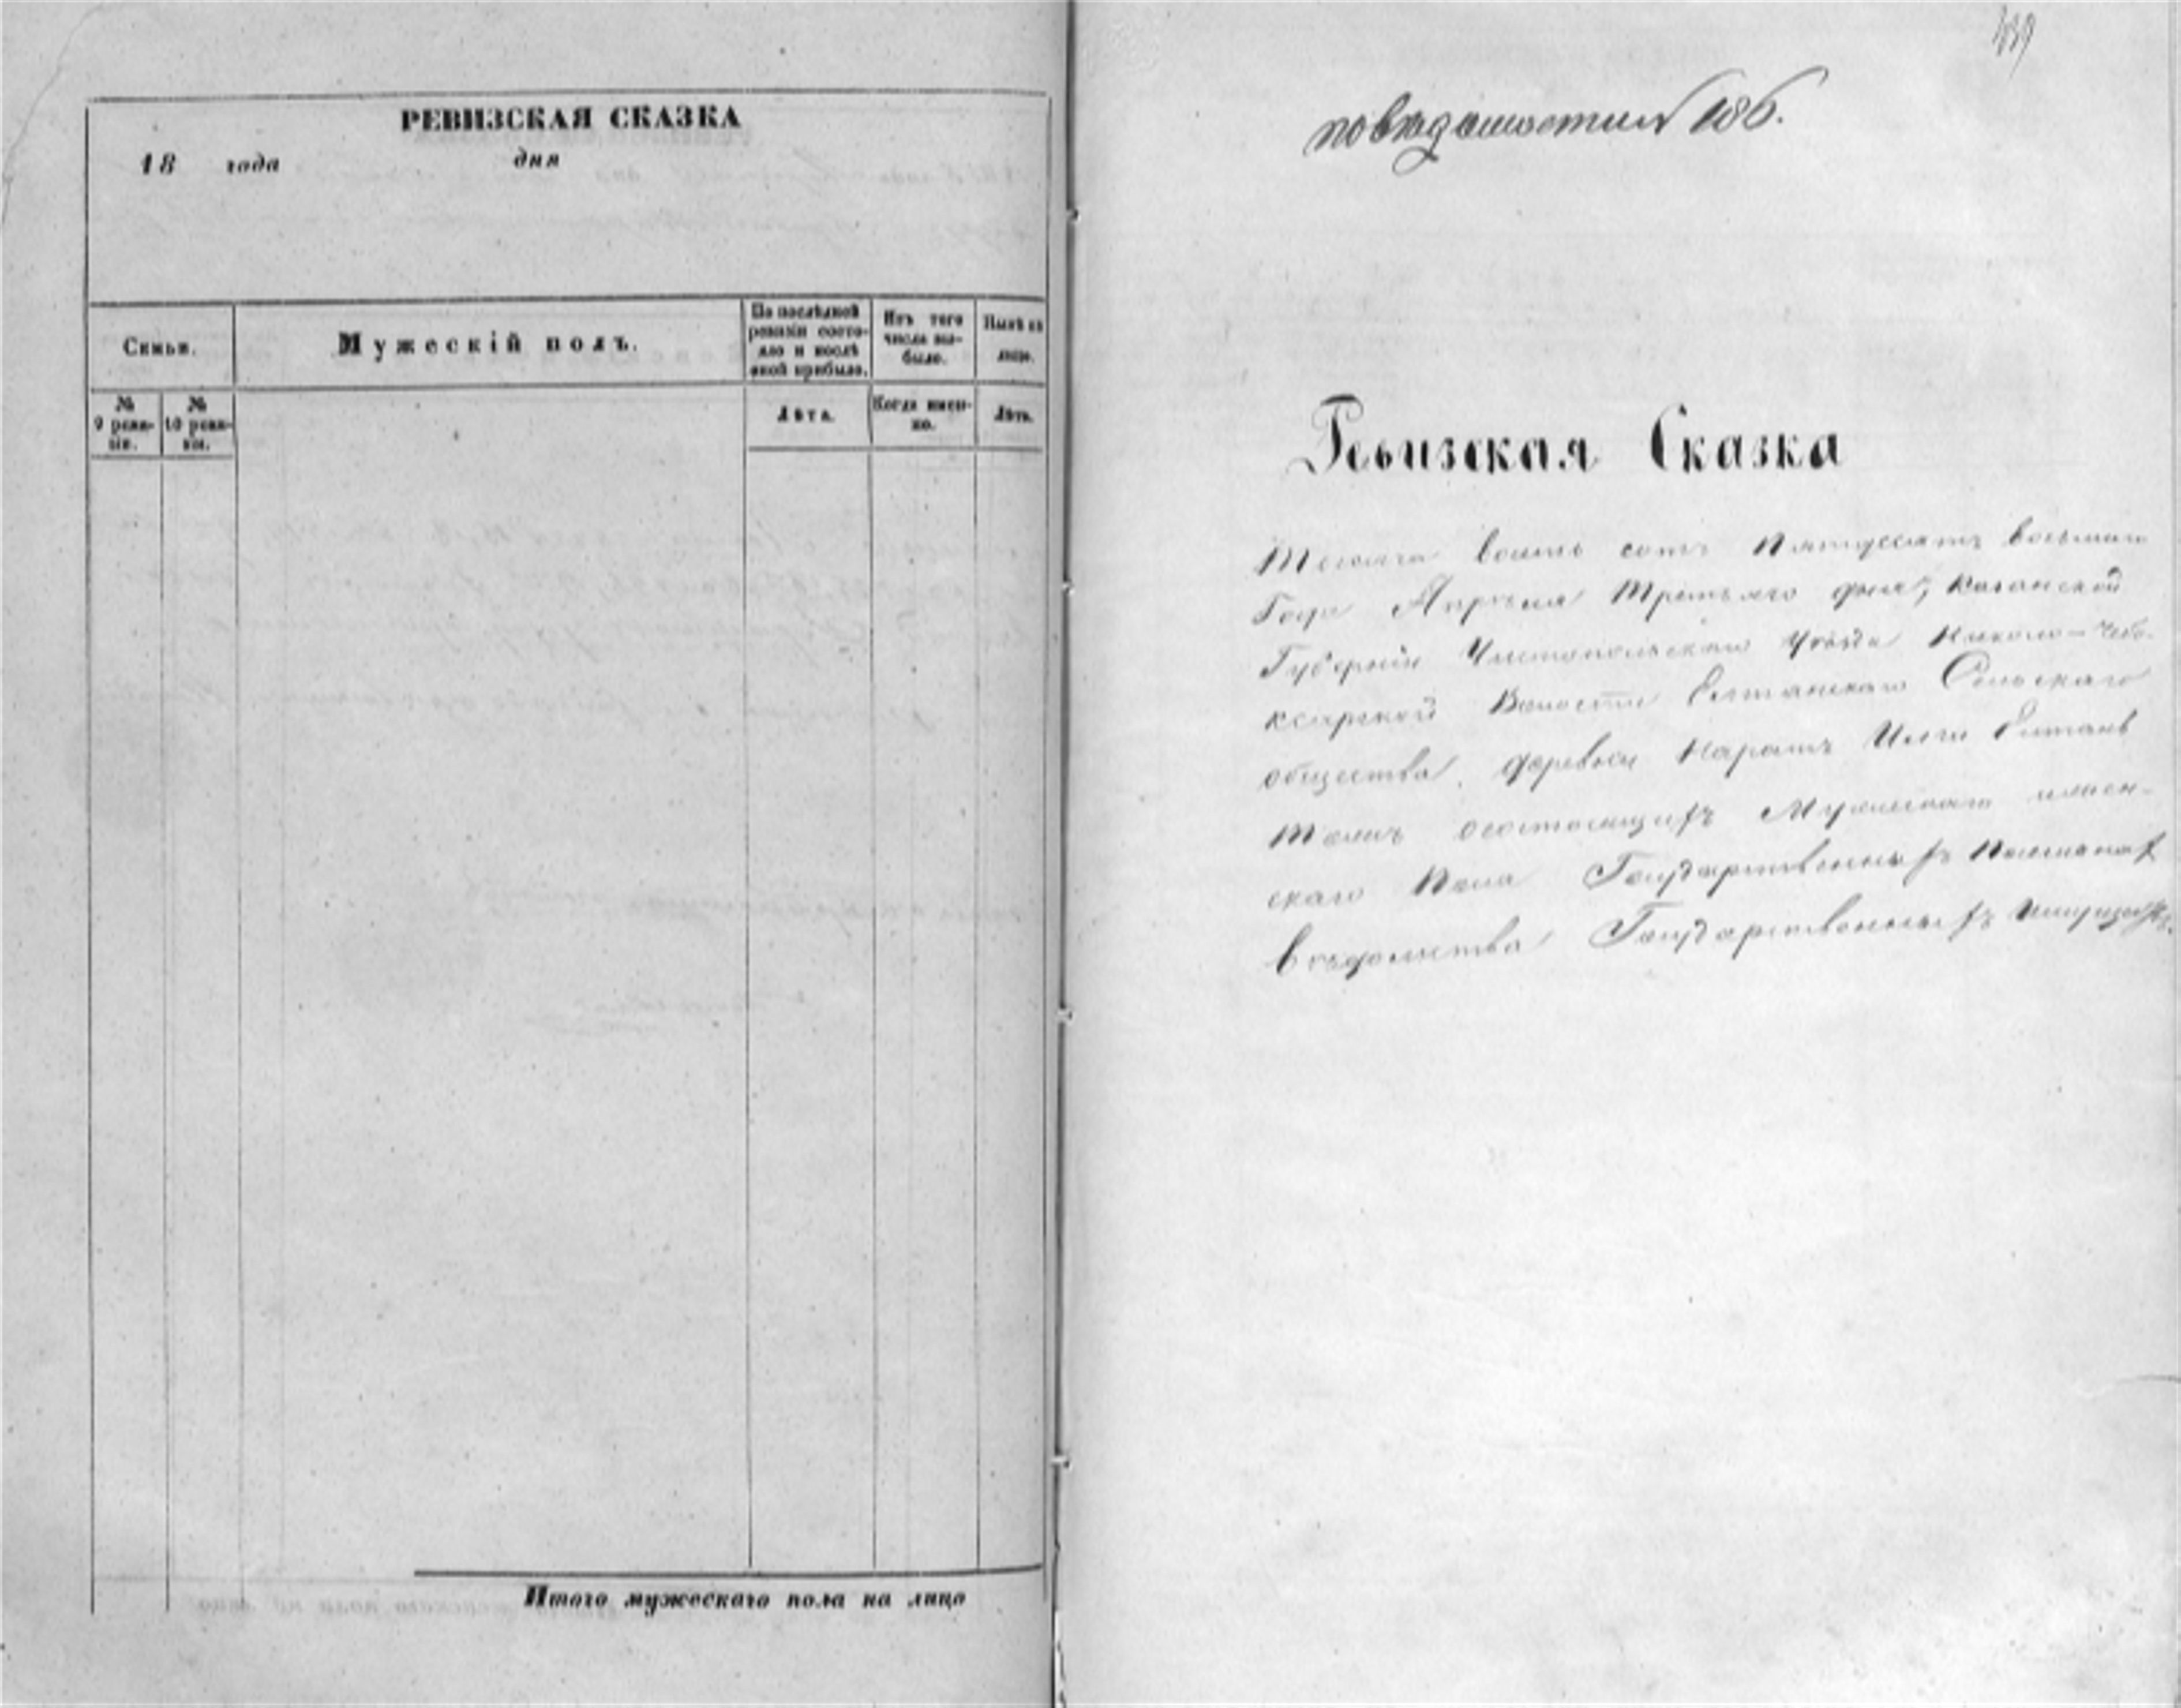 РЕВИЗСКАЯ СКАЗКА
18 года дня
Семьи.
Мужескій полъ.
По послѣдней
ревизіи состо-
яло и послѣ
оной прибыло.
Изъ того
числа вы-
было.
Нынѣ на
лицо.
№
9 реви-
зіи.
№
10 реви-
зіи.
Лѣта.
Когда имен-
но.
Лѣта.
Итого мужескаго пола на лицо
186.
Ревизская Сказка
Тысяча восемь сотъ Пятдесятъ восьмаго
Года Апрѣля Третьяго дня, Казанской
Губерніи Чистопольскаго Уѣзда Николо-Чебо-
ксарской Волости Елтанскаго Сельскаго
общества, деревни Наратъ Илги Елтанъ
тожъ состоящихъ Мужескаго и женс-
скаго Пола Государственныхъ
вѣдомства Государственныхъ Имуществъ.